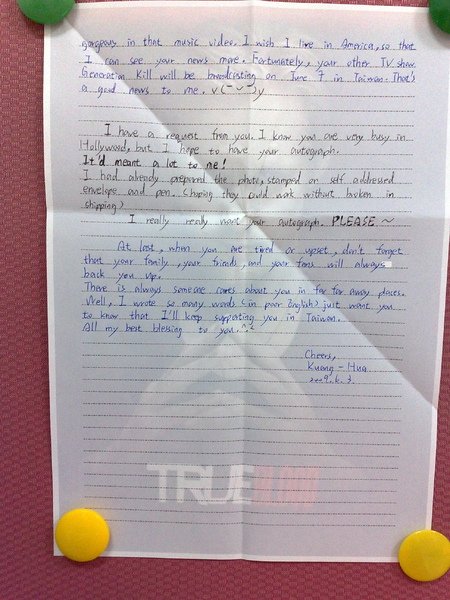 gorgeous in that music video. I wish I live in America, so that
I can see your news more. Fortunately, your other TV show
Generation Kill will be broadcasting on June 7 in Taiwan. That's
a good news to me. v(^-^)y
I have a request from you. I know you are very busy in
Hollywood, but I hope to have your autograph.
It'd meant a lot to me!
I had already prepared the photo, stamped on self addressed
envelope and pen. (hoping they could work without broken in
shipping)
I really really want your autograph. PLEASE~
At last, when you are tired or upset, don't forget
that your family, your friends, and your fans will always
back you up.
There is always someone cares about you in far far away places.
Well, I wrote so many words (in poor English) just want you
to know that I'll keep supporting you in Taiwan.
All my best blessing to you.^^
Cheers,
Kuang-Hua
2009. 6. 3.
TRUE